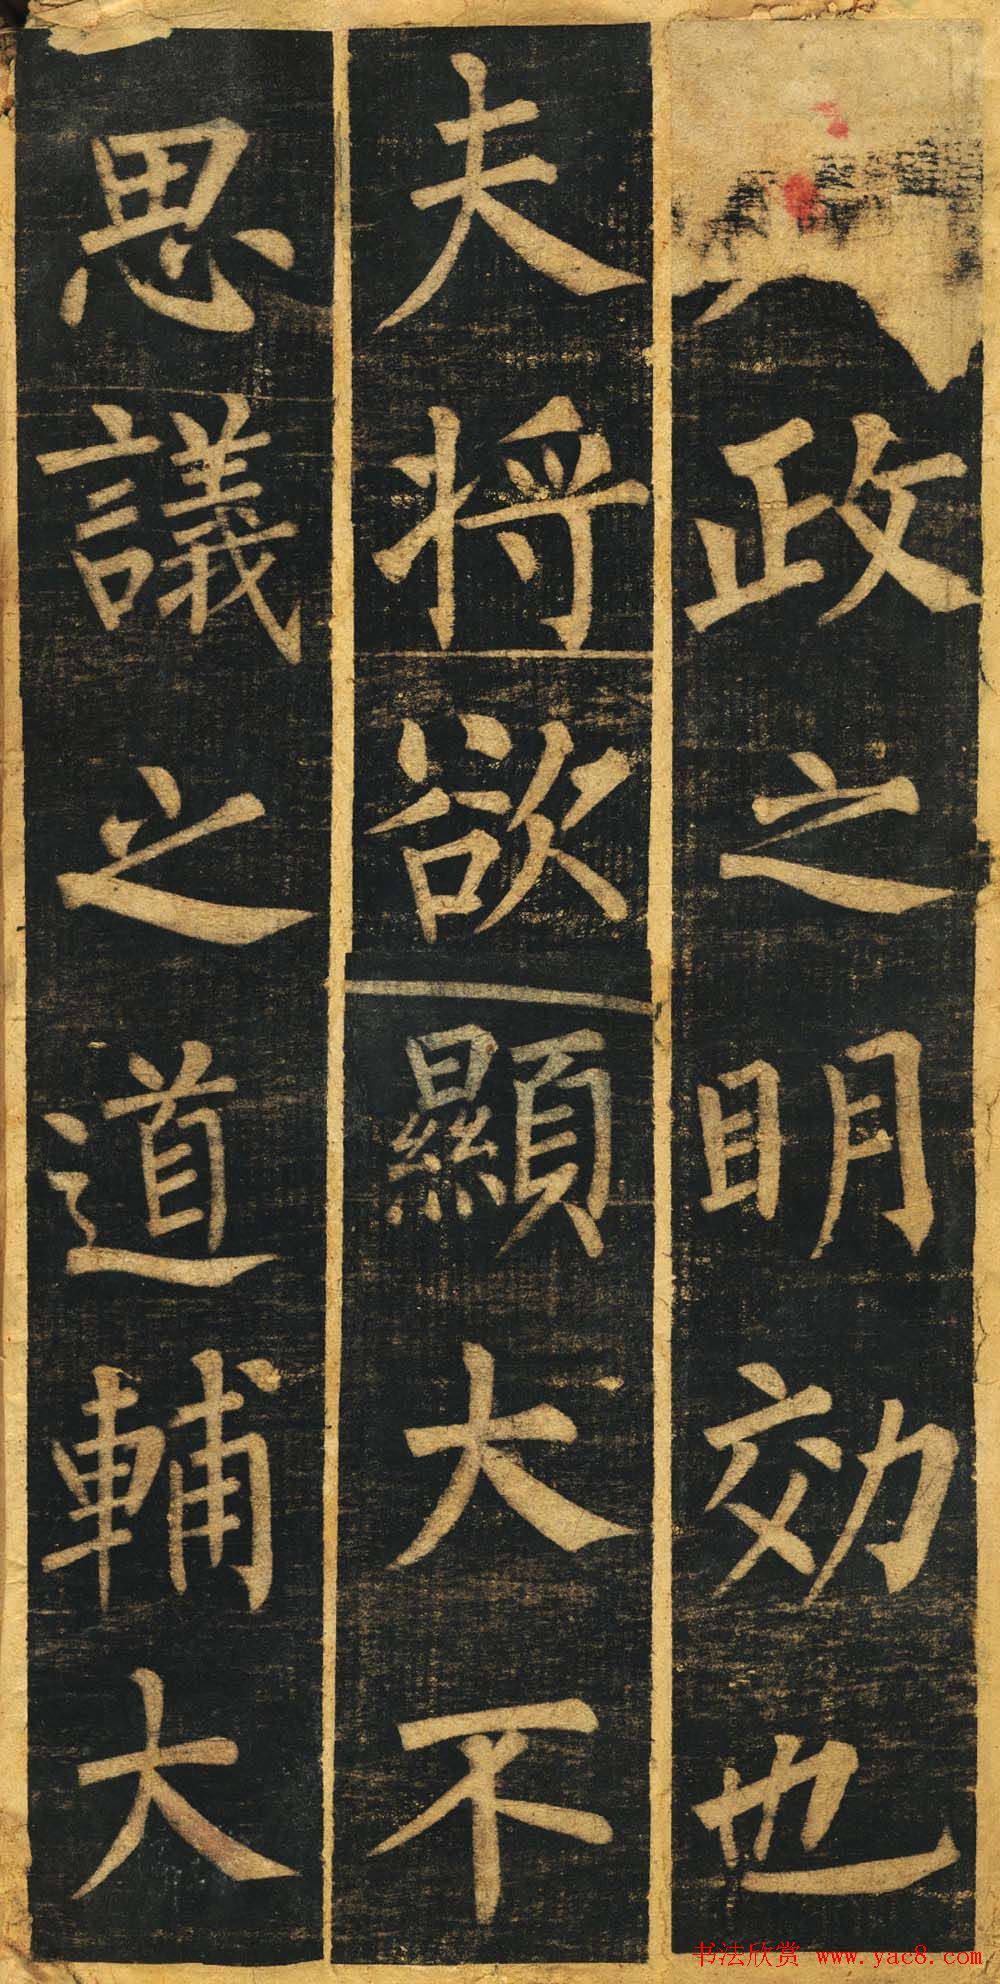 政之明効也
夫将欲顯大不
思議之道輔大
书法欣赏 www.yac8.com